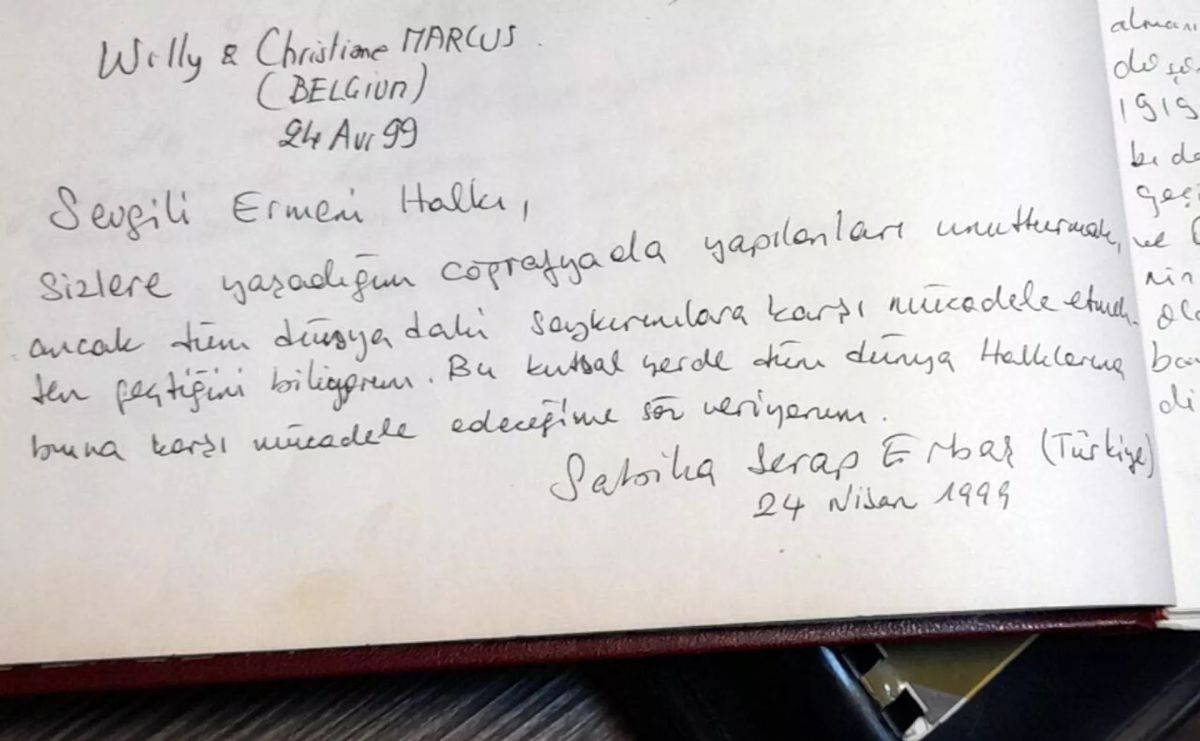 Willy & Christiane MARCUS.
(BELGIUM)
24 Avr 99
Sevgili Ermeni Halkı,
Sizlere yaşadığım coğrafyada yapılanları unutturmak,
ancak tüm dünyadaki soykırımlara karşı mücadele etmek-
ten geçtiğini biliyorum. Bu kutsal yerde tüm dünya Halklarına
buna karşı mücadele edeceğime söz veriyorum.
Serap Erbaş (Türkiye)
24 Nisan 1999
alman
1919
ve
di